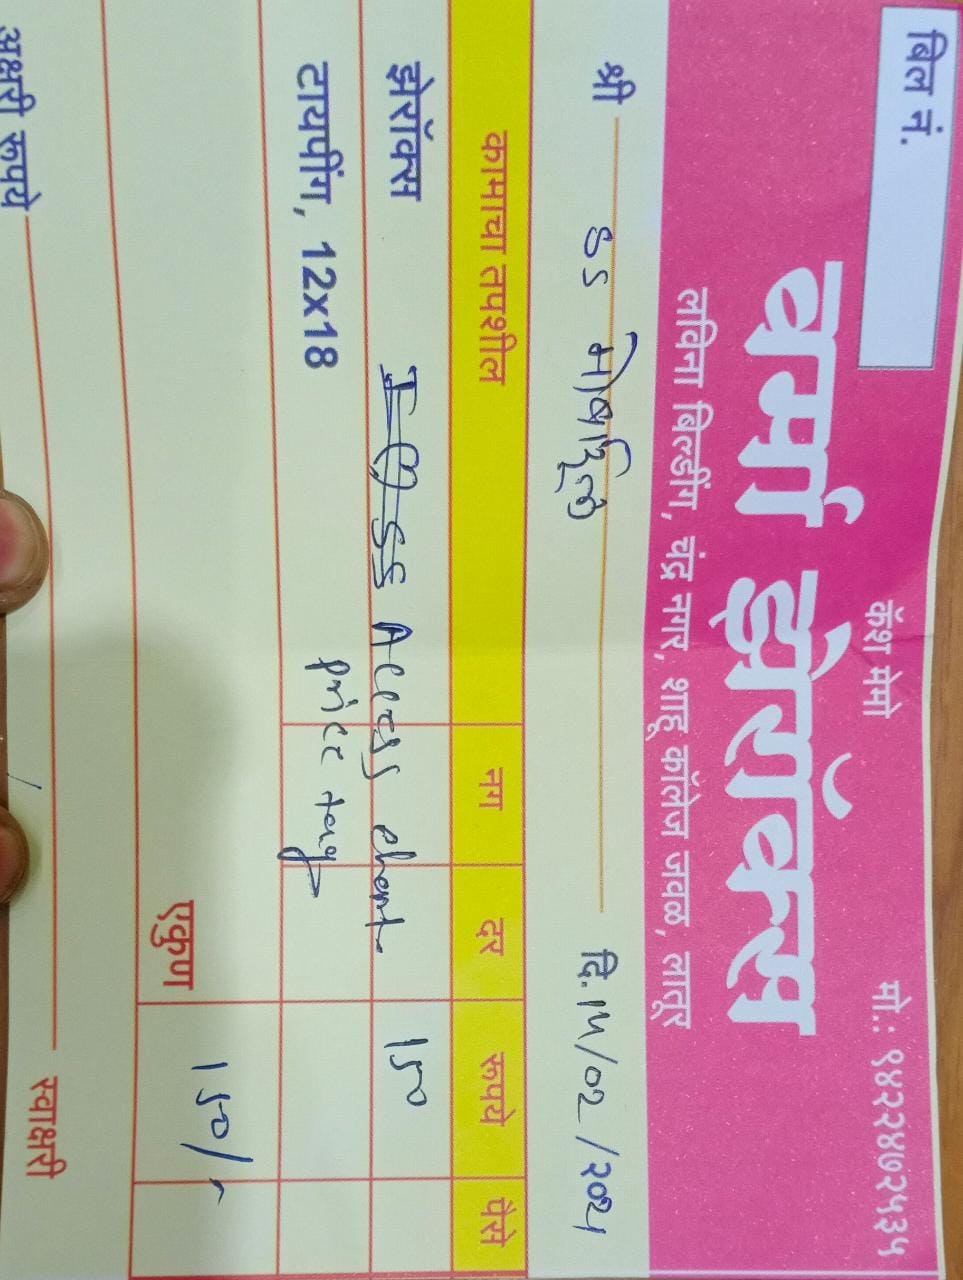 बिल नं.
कॅश मेमो
मो.: ९४२२४७२५३५
वर्मा झेरॉक्स
लविना बिल्डींग, चंद्र नगर, शाहू कॉलेज जवळ, लातूर
श्री SS मोबाईल दि. /02/202
कामाचा तपशील नग दर रूपये पैसे
झेरॉक्स SS Access chart 150
टायपींग, 12x18 price tag
एकुण 150/-
अक्षरी रूपये
स्वाक्षरी